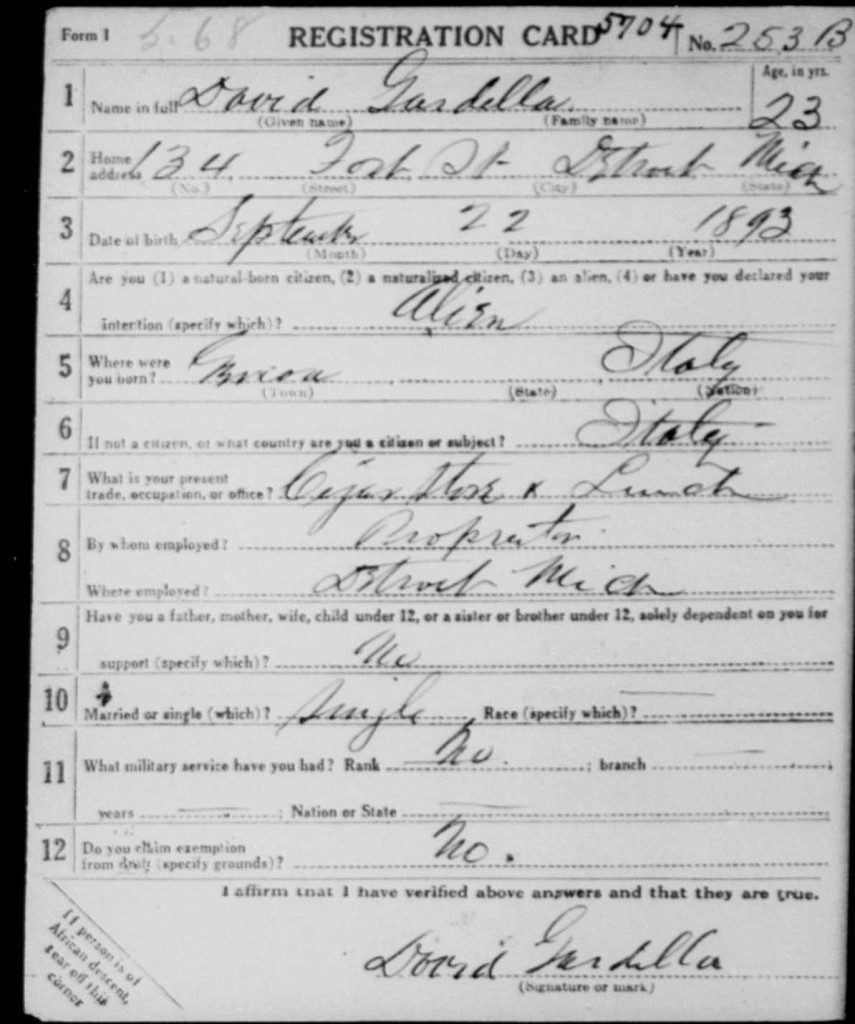 Form 1 5-68 REGISTRATION CARD 5704 No. 253 B
1 Name in full David Gardella Age, in yrs. 23
(Given name) (Family name)
2 Home address 134 Fort St Detroit Mich
(No.) (Street) (City) (State)
3 Date of birth September 22 1893
(Month) (Day) (Year)
Are you (1) a natural-born citizen, (2) a naturalized citizen, (3) an alien, (4) or have you declared your
4 intention (specify which)? Alien
5 Where were you born? Italy
(Town) (State) (Nation)
6 If not a citizen, of what country are you a citizen or subject? Italy
7 What is your present trade, occupation, or office? Cigar Store x Lunch
8 By whom employed? Proprietor
Where employed? Detroit Mich
Have you a father, mother, wife, child under 12, or a sister or brother under 12, solely dependent on you for
9 support (specify which)? No
10 Married or single (which)? Single Race (specify which)?
11 What military service have you had? Rank No. ; branch
years ; Nation or State
12 Do you claim exemption from draft (specify grounds)? No.
I affirm that I have verified above answers and that they are true.
David Gardella
(Signature or mark)
If person is of
African descent,
tear off this
corner